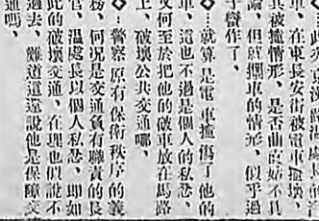 ◇…此次京漢路溫處長的
車、在東長安街被電車撞壞、
其被撞情形、是否曲直姑不具
論、但就攔車的情形、似乎過
于聲作了、
◇…就算是電車撞傷了他的
車、這也不過是個人的私忿、
又何至於把他的破車放在馬路
上、破壞公共交通哪、
◇…警察原有保衛秩序的義
務、何况是交通負有職責的長
官、溫處長以個人私忿、即如
此的破壞交通、在理也似說不
過去、難道這還說他是保障交
通嗎、